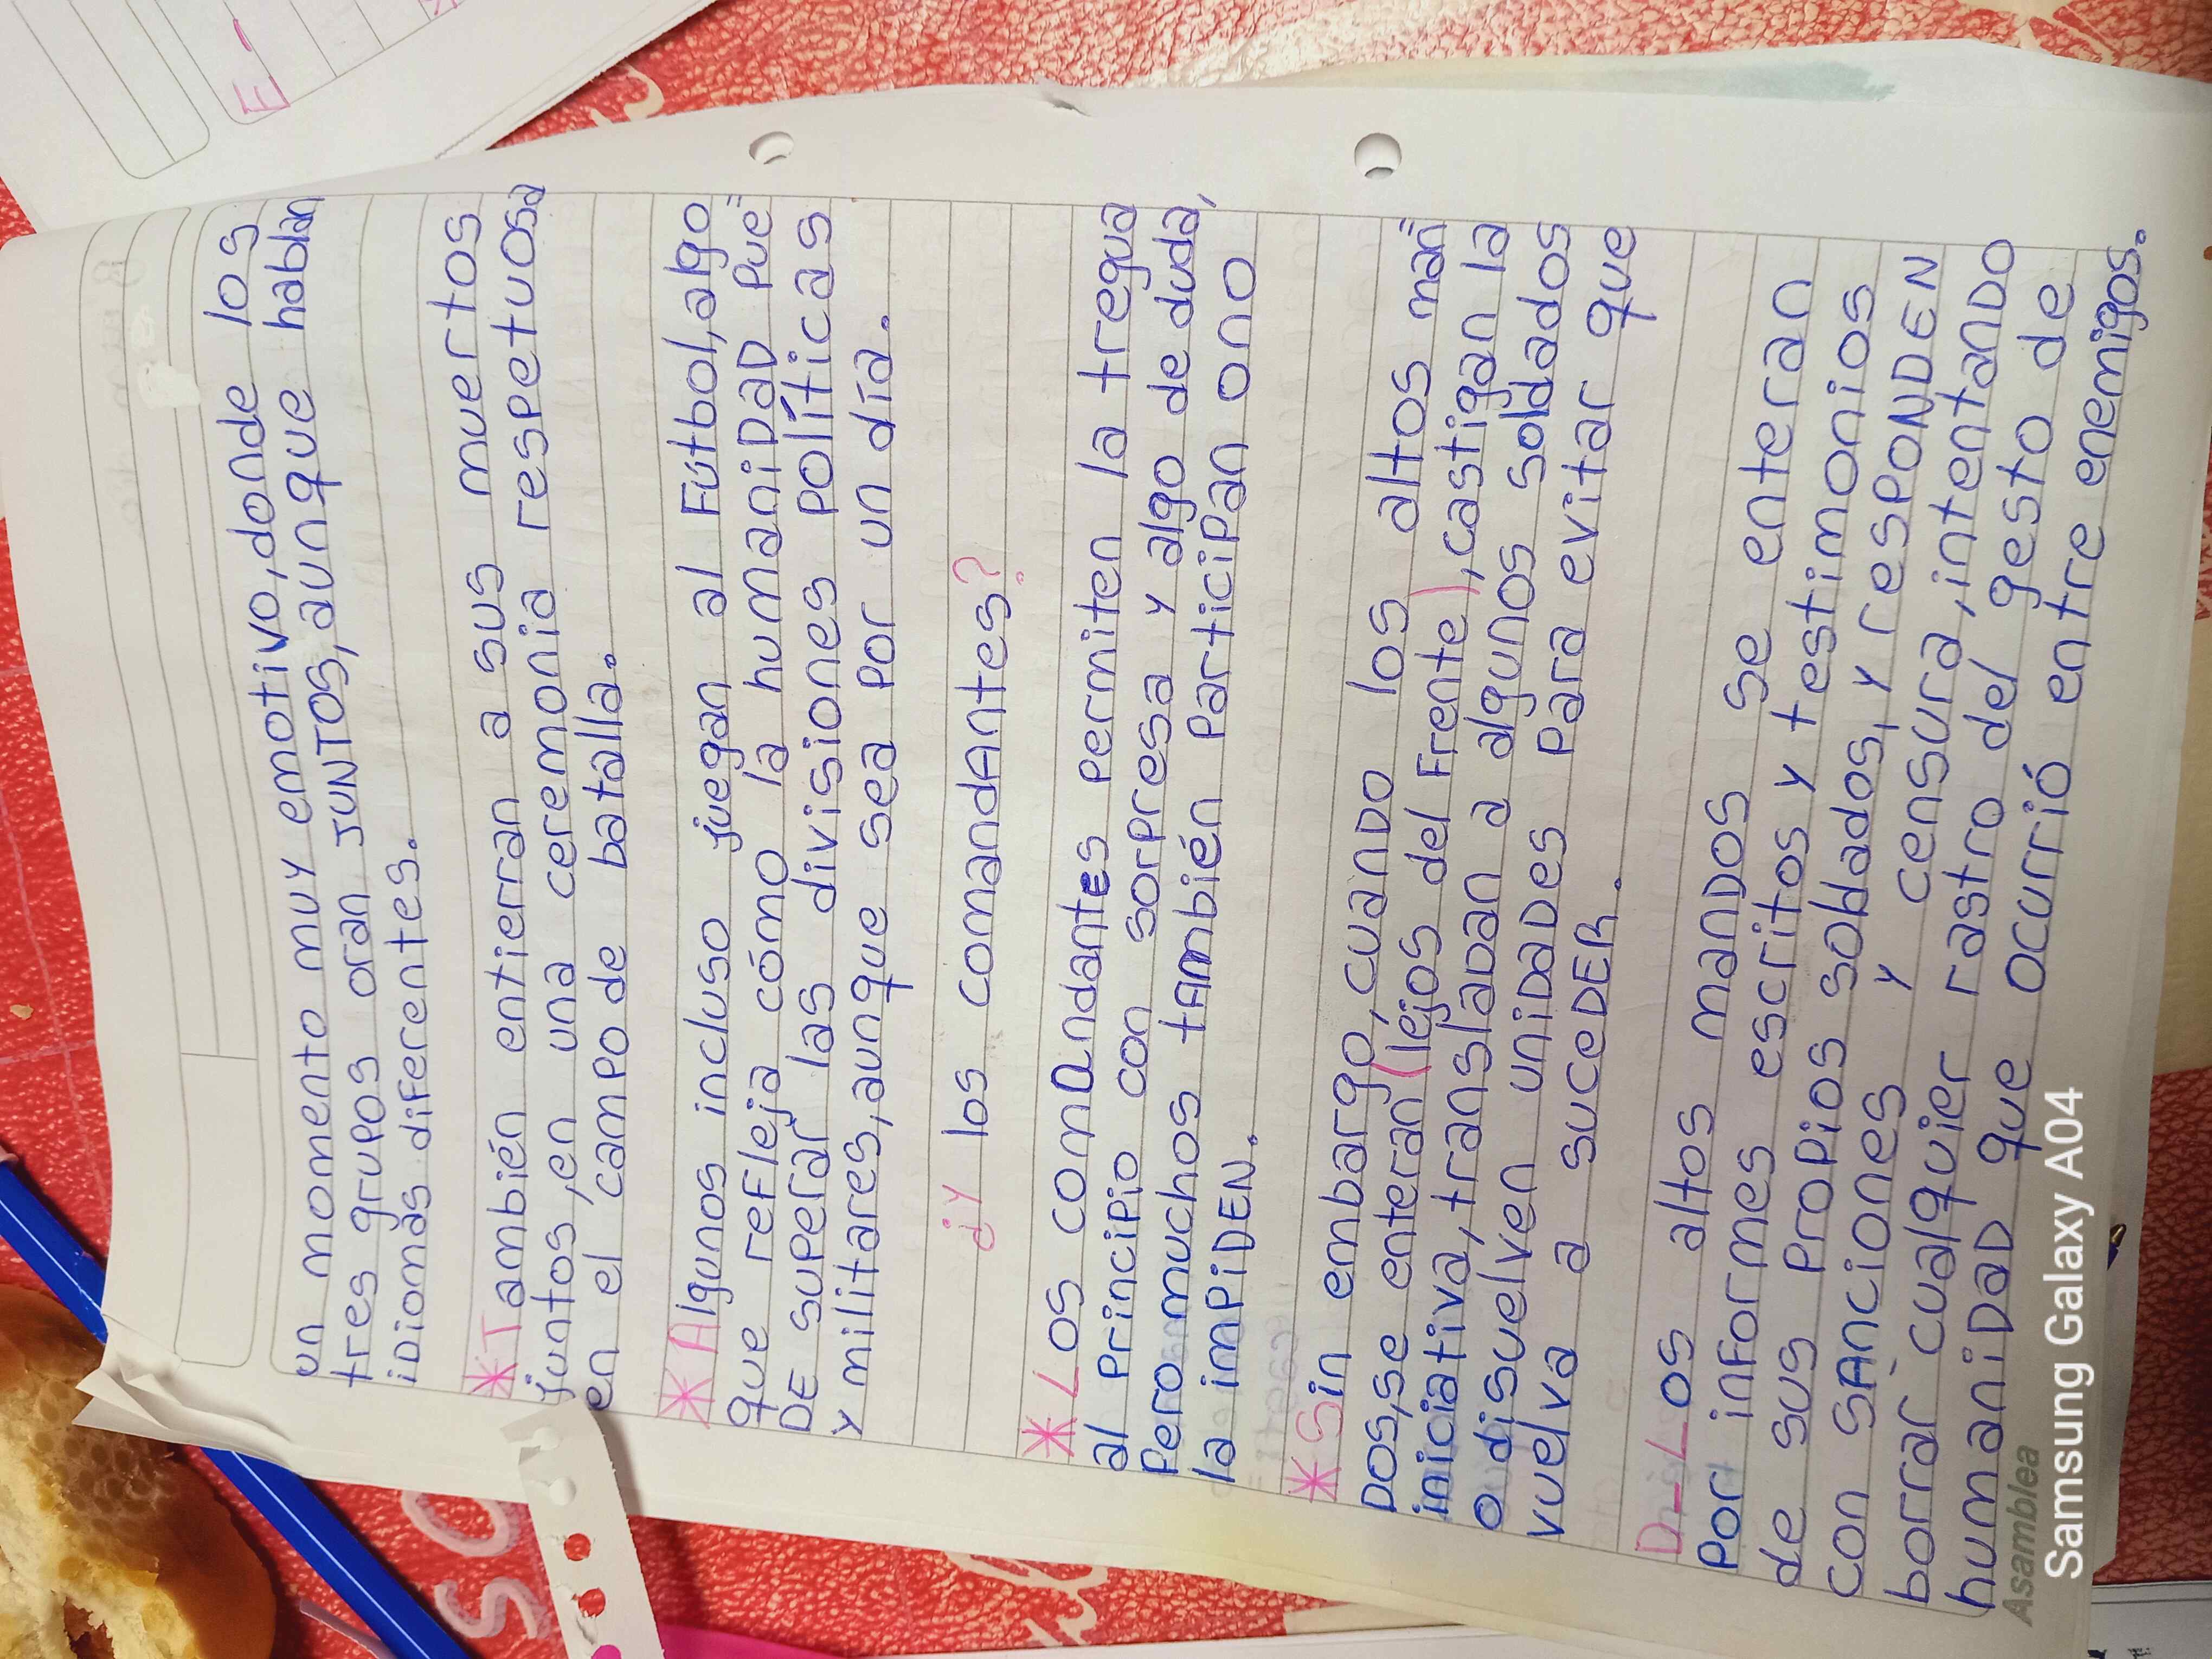 un momento muy emotivo, donde los
tres grupos oran JUNTOS, aunque hablan
iDiomas diferentes.
*También entierran a sus muertos
juntos, en una ceremonia respetuosa
en el campo de batalla.
*Algunos incluso juegan al Fútbol, algo
que refleja cómo la humaniDaD pue=
DE superar las divisiones políticas
y militares, aunque sea por un día.
¿Y los comandAntes?
*Los comandantes permiten la tregua
al principio con sorpresa y algo de duda,
Pero muchos tAmbién participan o no
la impiDEN.
*Sin embargo, cuanDo los altos man=
Dos, se enteran (lejos del Frente), castigan la
iniciativa, transladan a algunos soldados
o disuelven uniDaDes para evitar que
vuelva a suceDER.
D-Los altos manDos se enteran
Por inFormes escritos y testimonios
de sus propios soldados, y resPONDEN
con sANciones y censura, intentanDO
borrar cualquier rastro del gesto de
humaniDaD que ocurrió entre enemigos.
Asamblea
Samsung Galaxy A04
E-